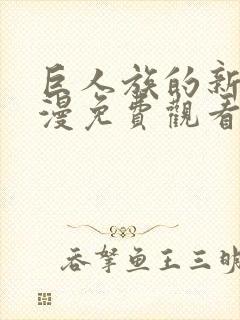 巨人族的新
漫免費觀看
吞拏鱼王三明